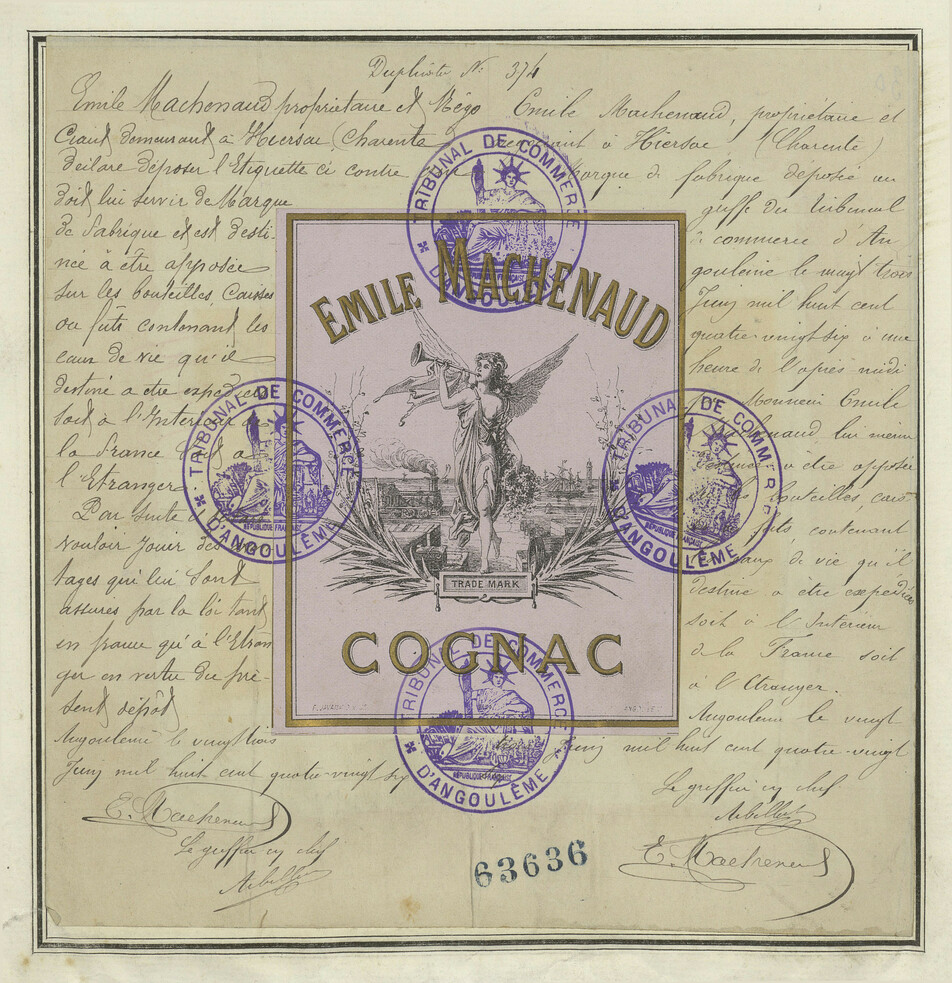 Duplicata N: 374
Emile Machenaud propriétaire et Négo
Ciant demeurant à Hiersac (Charente
déclare déposer l'Etiquette ci contre
doit lui servir de Marque
de fabrique et est desti-
née à être apposée
sur les bouteilles Caisses
ou futs contenant les
eaux de vie qu'il
destine a etre expédiées
soit à l'Interieur de
la France soit à
l'Etranger
Par suite
vouloir jouir des
tages qui lui sont
assurés par la loi tant
en france qu'à l'Etran
ger en vertu du pré-
sent dépôt
Angoulême le vingt trois
Juin mil huit cent quatre-vingt six
E. Machenaud
Le greffier en chef
Emile Machenaud, propriétaire et
à Hiersac (Charente)
Marque de fabrique déposée au
greffe du Tribunal
de commerce d'An
goulême le vingt trois
Juin mil huit cent
quatre vingt six à une
heure de l'après midi
par Monsieur Emile
Machenaud, lui même
à être apposée
bouteilles, cais
futs contenant
eaux de vie qu'il
destine à être expédiées
soit à l'Interieur
de la France soit
à l'Etranger.
Angoulême le vingt
trois Juin mil huit cent quatre-vingt
Le greffier en chef
E. Machenaud
EMILE MACHENAUD
TRADE MARK
COGNAC
TRIBUNAL DE COMMERCE
D'ANGOULÊME
TRIBUNAL DE COMMERCE
RÉPUBLIQUE FRANÇAISE
D'ANGOULÊME
TRIBUNAL DE COMMERCE
RÉPUBLIQUE FRANÇAISE
D'ANGOULÊME
TRIBUNAL DE COMMERCE
RÉPUBLIQUE FRANÇAISE
D'ANGOULÊME
63636